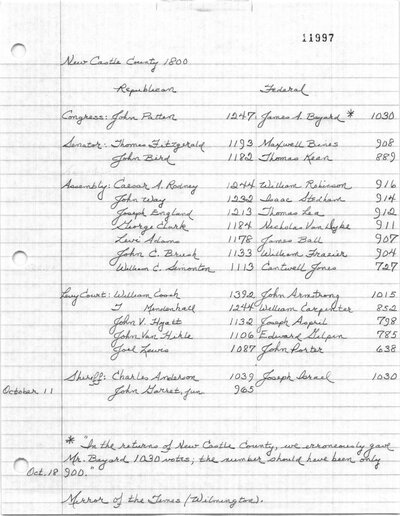 11997
New Castle County 1800
Republican Federal
Congress: John Patten 1247 James A. Bayard * 1030
Senator: Thomas Fitzgerald 1193 Maxwell Bines 908
John Bird 1182 Thomas Kean 889
Assembly: Caesar A. Rodney 1244 William Robinson 916
John Way 1232 Isaac Stedham 914
Joseph England 1213 Thomas Lea 912
George Clark 1184 Nicholas Van Dyke 911
Levi Adams 1178 James Ball 907
John C. Brush 1133 William Frazier 904
William C. Simonton 1113 Cantwell Jones 727
Levy Court: William Cooch 1392 John Armstrong 1015
T Mendenhall 1244 William Carpenter 852
John V. Hyatt 1132 Joseph 798
John Van 1106 Edward Gilpin 785
Joel Lewis 1087 John Porter 638
Sheriff: Charles Anderson 1039 Joseph Israel 1030
October 11 John Garret, jun 965
* "In the returns of New Castle County, we erroneously gave
Mr. Bayard 1030 votes; the number should have been only
Oct. 18 900."
Mirror of the Times (Wilmington).